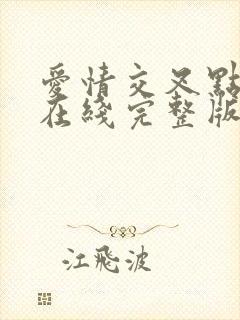 愛情交叉點
在綫完整版
江飛波